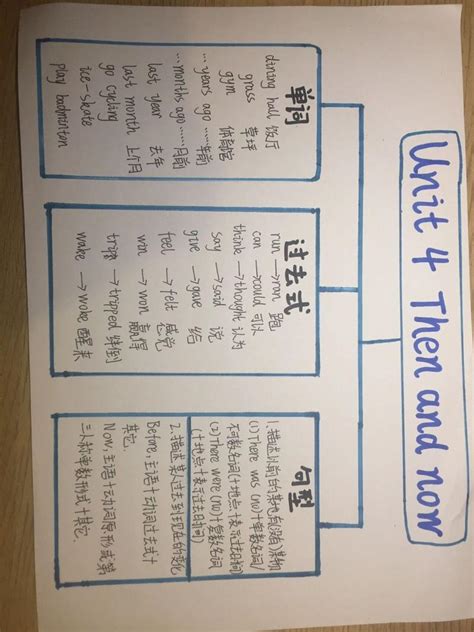 Unit 4 Then and now
单词
dining hall 饭厅
grass 草坪
gym 体育馆
...years ago ......年前
...months ago ......月前
last year 去年
last month 上个月
go cycling
ice-skate
play badminton
过去式
run →ran 跑
can →could 可以
think →thought 认为
say →said 说
give →gave 给
feel →felt 感觉
win →won 赢得
trip →tripped 绊倒
wake →woke 醒来
句型
1.描述以前的某地有(没有)某物:
(1)There was (no)+单数名词/
不可数名词(+地点+表示过去时间)
(2)There were (no)+复数名词
(+地点+表示过去时间)
2.描述某人过去到现在的变化
Before,主语+动词过去式+
其它.
Now,主语+动词原形或第
三人称单数形式+其它.